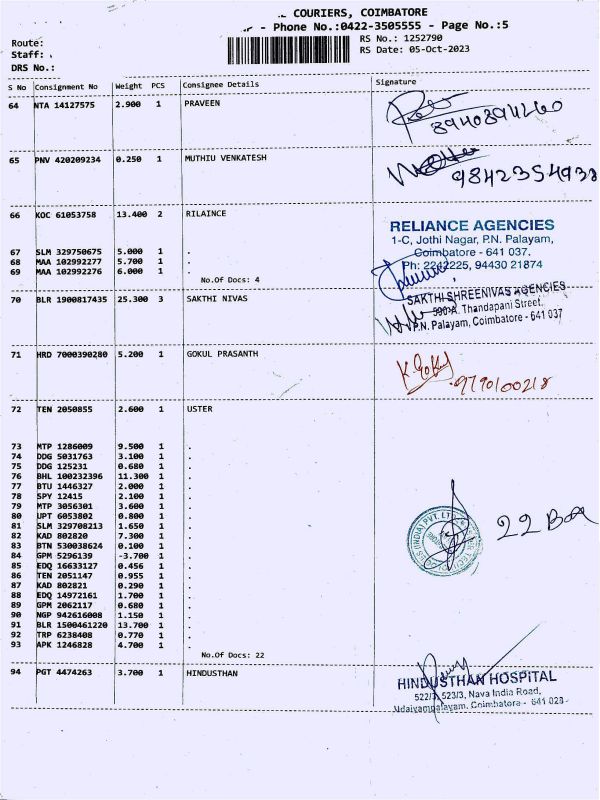 COURIERS, COIMBATORE
- Phone No.:0422-3505555 - Page No.:5
Route:
Staff:
DRS No.:
RS No.: 1252790
RS Date: 05-Oct-2023
S No Consignment No Weight PCS Consignee Details Signature
64 NTA 14127575 2.900 1 PRAVEEN
8940894260
65 PNV 420209234 0.250 1 MUTHIU VENKATESH
9842354938
66 KOC 61053758 13.400 2 RILAINCE
RELIANCE AGENCIES
1-C, Jothi Nagar, P.N. Palayam,
Coimbatore - 641 037.
Ph: 2242225, 94430 21874
67 SLM 329750675 5.000 1 .
68 MAA 102992277 5.700 1 .
69 MAA 102992276 6.000 1 .
No.Of Docs: 4
70 BLR 1900817435 25.300 3 SAKTHI NIVAS
SAKTHI SHREENIVAS AGENCIES
590-A, Thandapani Street,
P.N. Palayam, Coimbatore - 641 037
71 HRD 7000390280 5.200 1 GOKUL PRASANTH
K. Gokul
9790100218
72 TEN 2050855 2.600 1 USTER
73 MTP 1286009 9.500 1 .
74 DDG 5031763 3.100 1 .
75 DDG 125231 0.680 1 .
76 BHL 100232396 11.300 1 .
77 BTU 1446327 2.000 1 .
78 SPY 12415 2.100 1 .
79 MTP 3056301 3.600 1 .
80 UPT 6053802 0.800 1 .
81 SLM 329708213 1.650 1 .
82 KAD 802820 7.300 1 .
83 BTN 530038624 0.100 1 .
84 GPM 5296139 -3.700 1 .
85 EDQ 16633127 0.456 1 .
86 TEN 2051147 0.955 1 .
87 KAD 802821 0.290 1 .
88 EDQ 14972161 1.700 1 .
89 GPM 2062117 0.680 1 .
90 NGP 942616008 1.150 1 .
91 BLR 1500461220 13.700 1 .
92 TRP 6238408 0.770 1 .
93 APK 1246828 4.700 1 .
(INDIA) PVT. LTD.
22 Box
No.Of Docs: 22
94 PGT 4474263 3.700 1 HINDUSTHAN
HINDUSTHAN HOSPITAL
522/3, 523/3, Nava India Road,
Udaiyampalayam, Coimbatore - 641 028